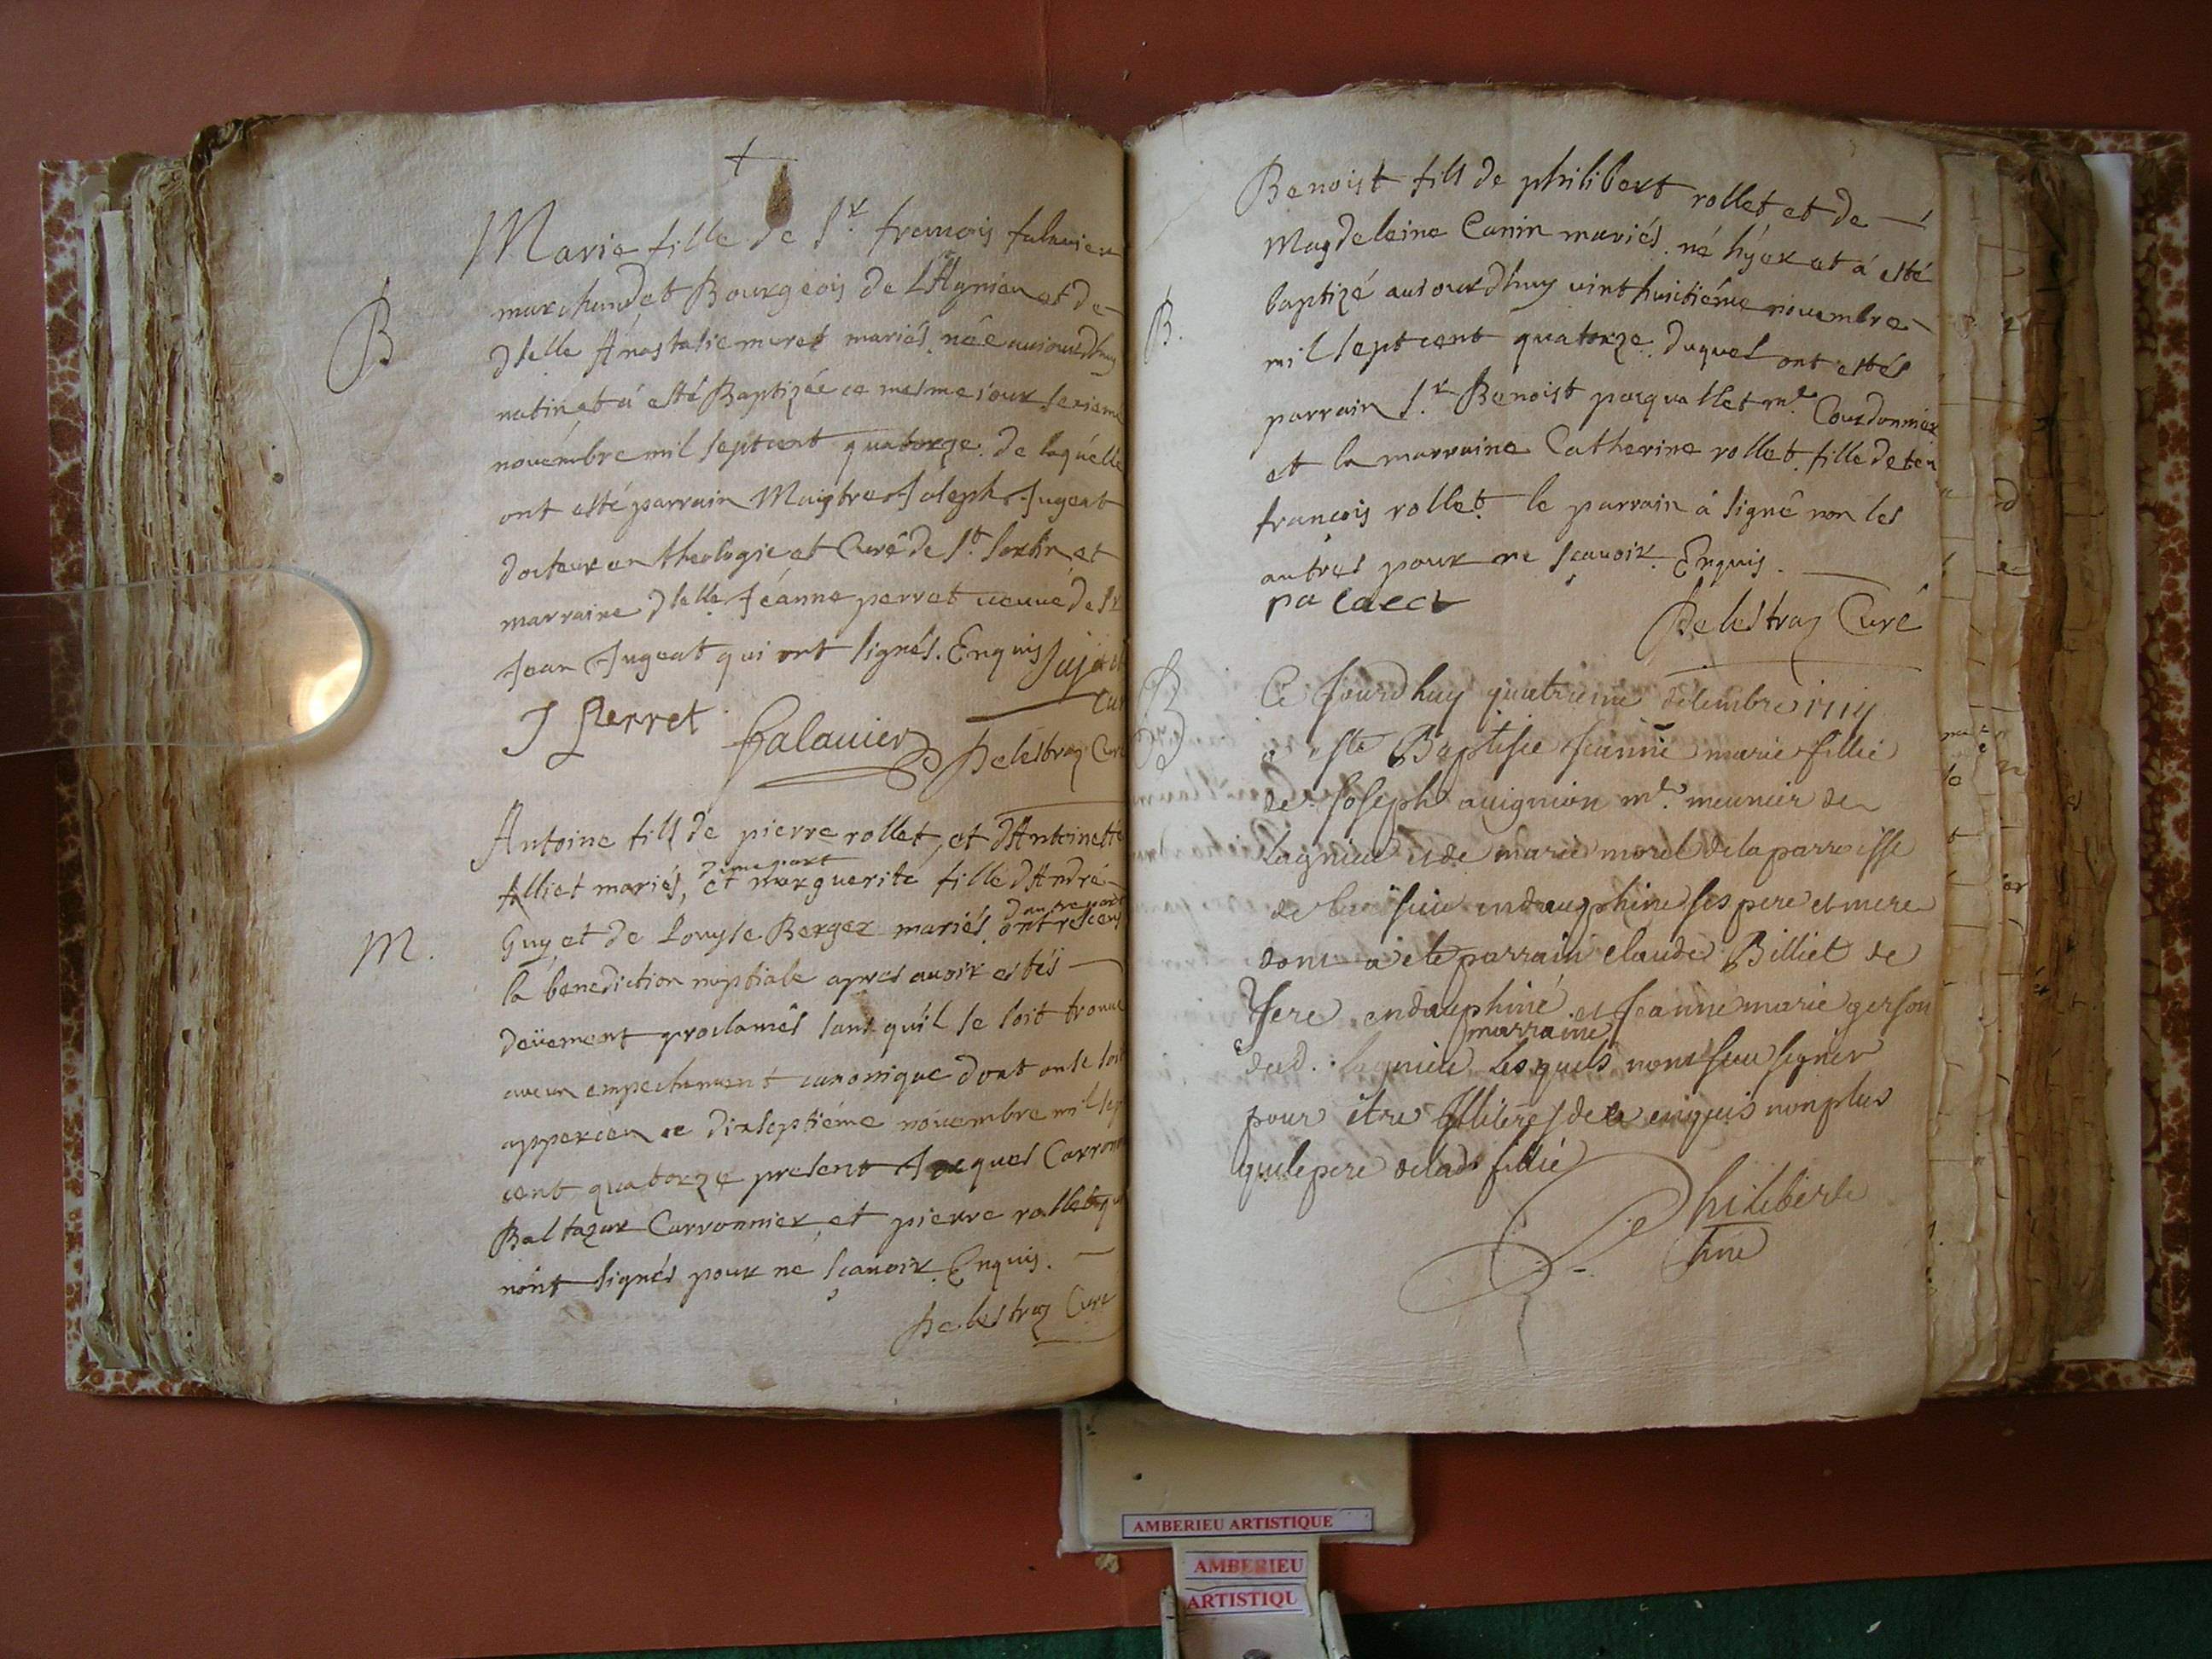 B
Marie fille de Sr. francois falauier
marchand et Bourgeois de LAgnieu et de
dlelle Anastasie muret mariés. née auiourdhuy
matin et á esté Baptizée ce mesme iour seziéme
nouémbre mil sept cent quatorze. de laquélle
ont esté parrain Maistre Joseph Jugeat
docteur en theologie et Curé de St. Sorlin et
marraine dlelle Jéanne perret ueuue de Sr
Jean Jugeat qui ont signés. Enquis Jujat
Cur
J Perret falauier Delestraz Curé
M.
Antoine fils de pierre rollet, et dAntoinette
dune part
Alliet mariés, et marguerite fille dAndré
dautre part
Guy et de Louyse Berger mariés. ont resceus
la benediction nuptiale apres auoir estés
deüement proclamés sans qu'il se soit trouué
aucun empechement canonique dont on se soit
apperceu ce dixseptiéme nouembre mil sept
cent quatorze present Jacques Carronnier
Baltazar Carronnier, et pierre rollet qui
n'ont signés pour ne sçauoir. Enquis.
Delestraz Curé
B.
Benoist fils de philibert rollet et de
Magdeleine Canin mariés. né hÿer et á esté
baptizé auiourdhuy uint huitiéme nouembre
mil sept cent quatorze. duquel ont estés
parrain Sr. Benoist pasquallet md. Courdonnier
et la marraine Catherine rollet. fille de feu
françois rollet. le parrain á signé non les
autres pour ne sçauoir. Enquis.
Delestraz Curé
B
Ce Jourdhuy quatrieme decembre 1714
a esté Baptisée Jeanne marie fillie
de Joseph auignion md. meunier de
Lagnieu et de marie morel de la parroisse
de en dauphine ses pere et mere
dont a été parrain claude Billiet de
Ysere en dauphiné et Jeanne marie gerson
marraine
dud. lagnieu Lesquels nont sceu signer
pour être Illiteres de ce enquis non plus
que le pere de lad. fillie
Philiberte
AMBERIEU ARTISTIQUE
AMBERIEU
ARTISTIQU